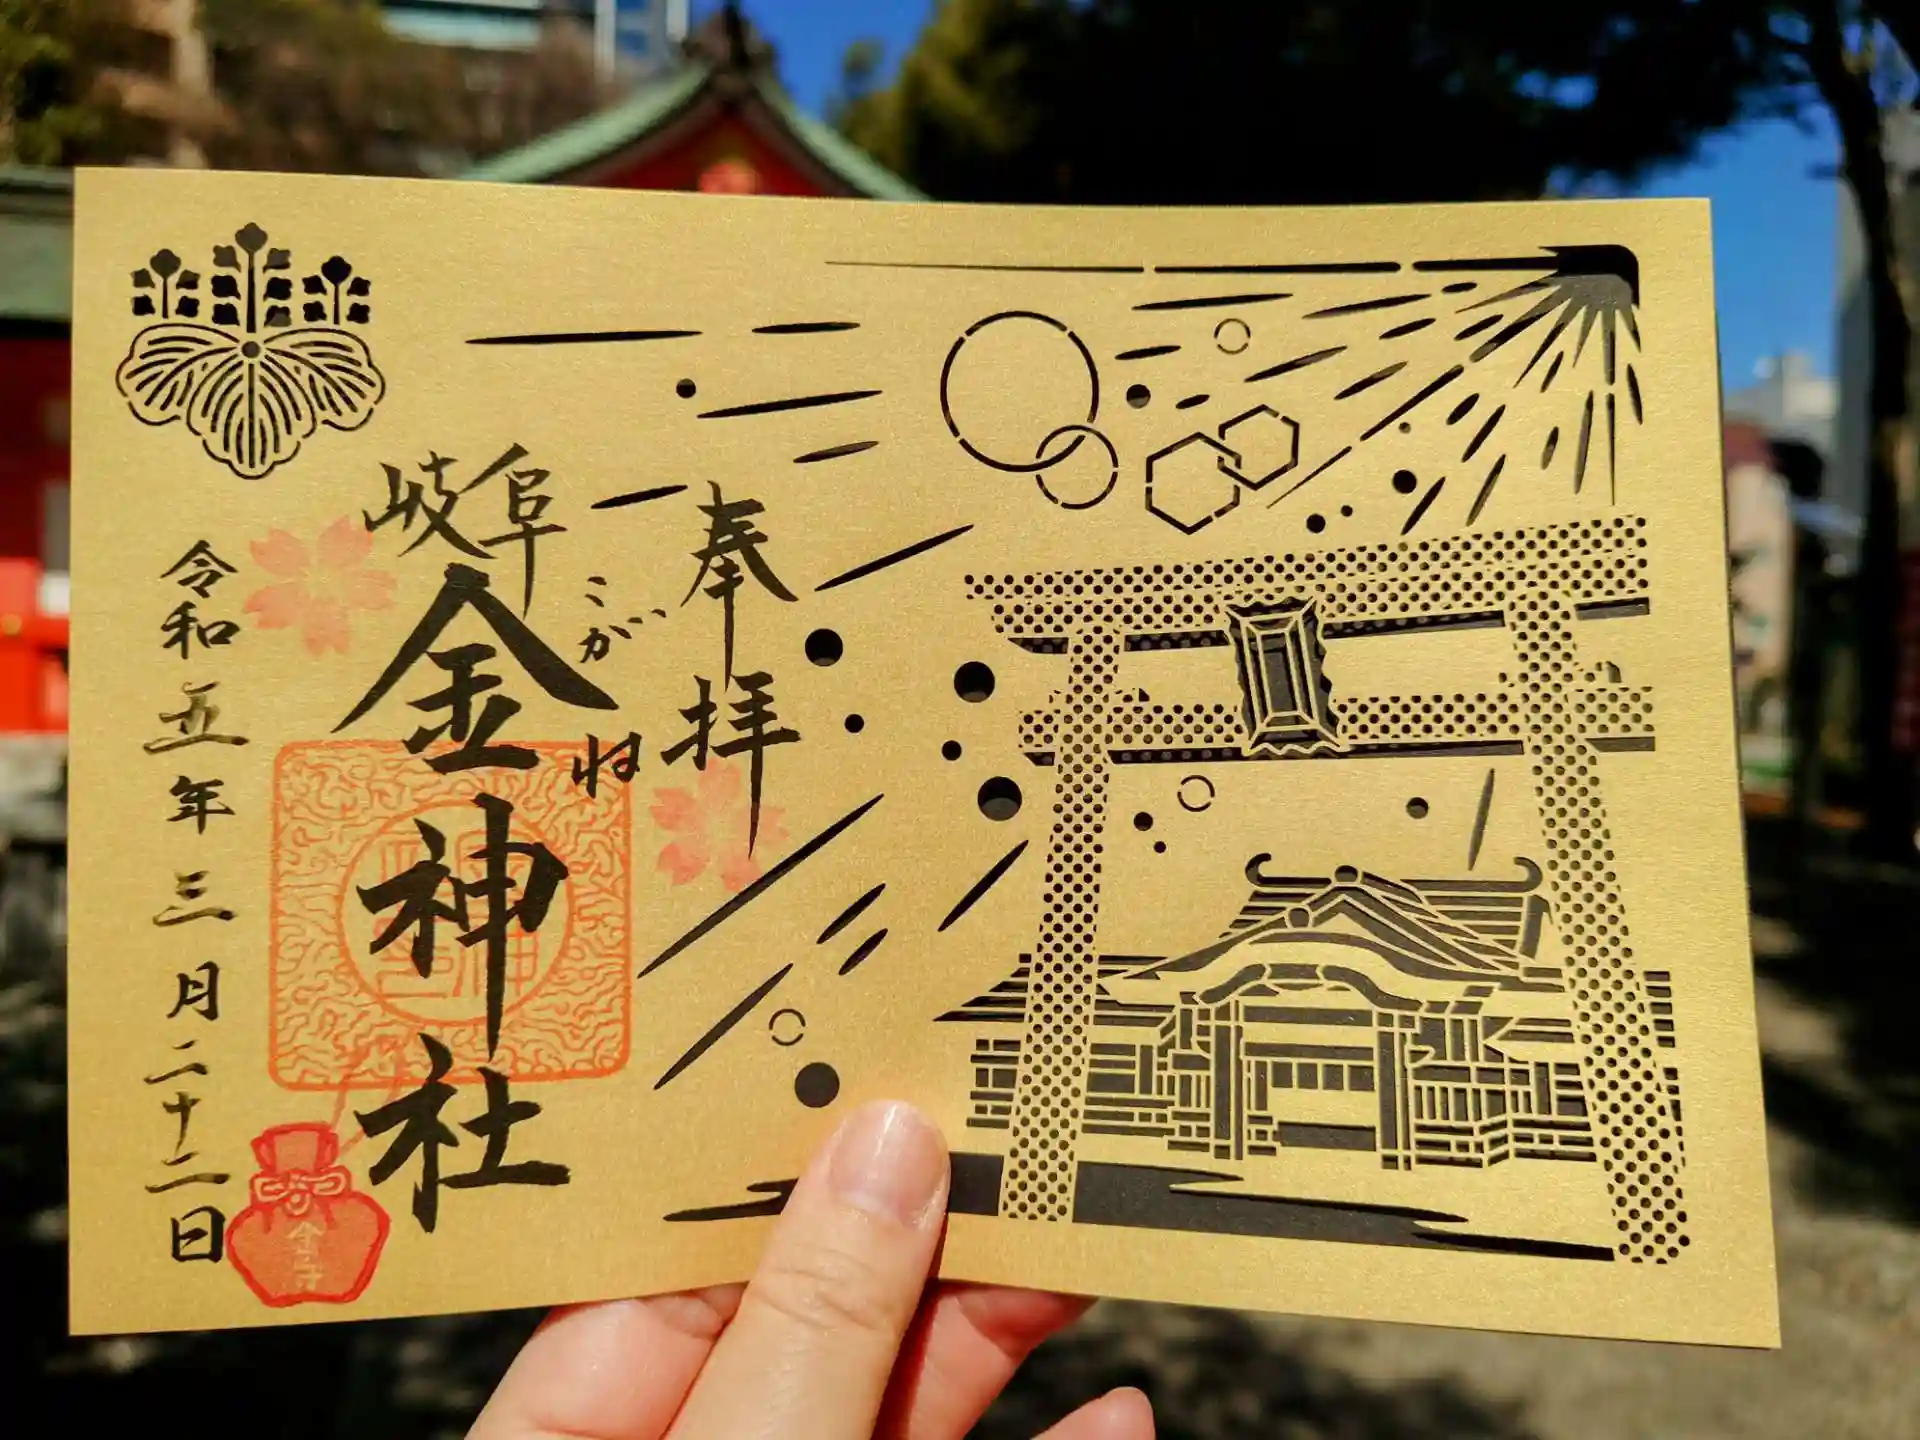 奉拝
岐阜
金神社
こがね
令和五年三月二十二日